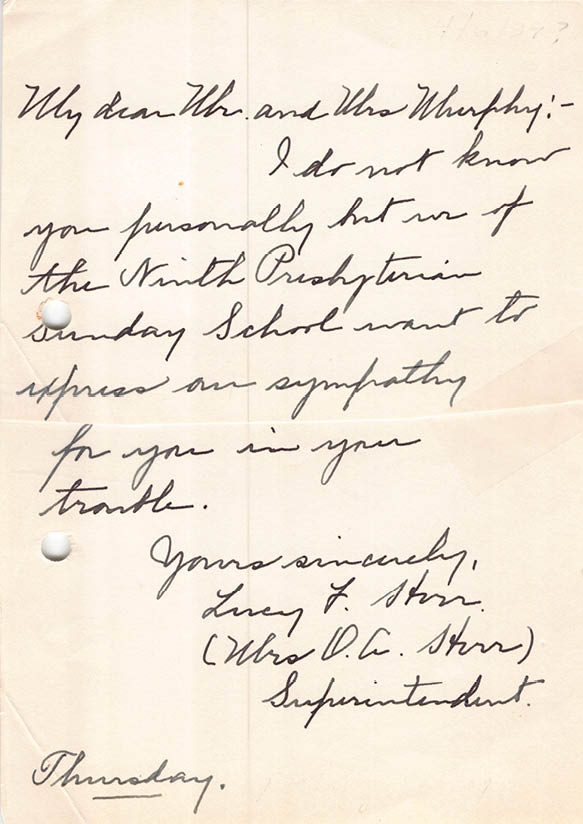 My dear Mr. and Mrs Murphy:-
I do not know
you personally but we of
the Ninth Presbyterian
Sunday School want to
express our sympathy
for you in your
trouble.
Yours sincerely,
Lucy F. Storr.
(Mrs O.A. Storr)
Superintendent.
Thursday.